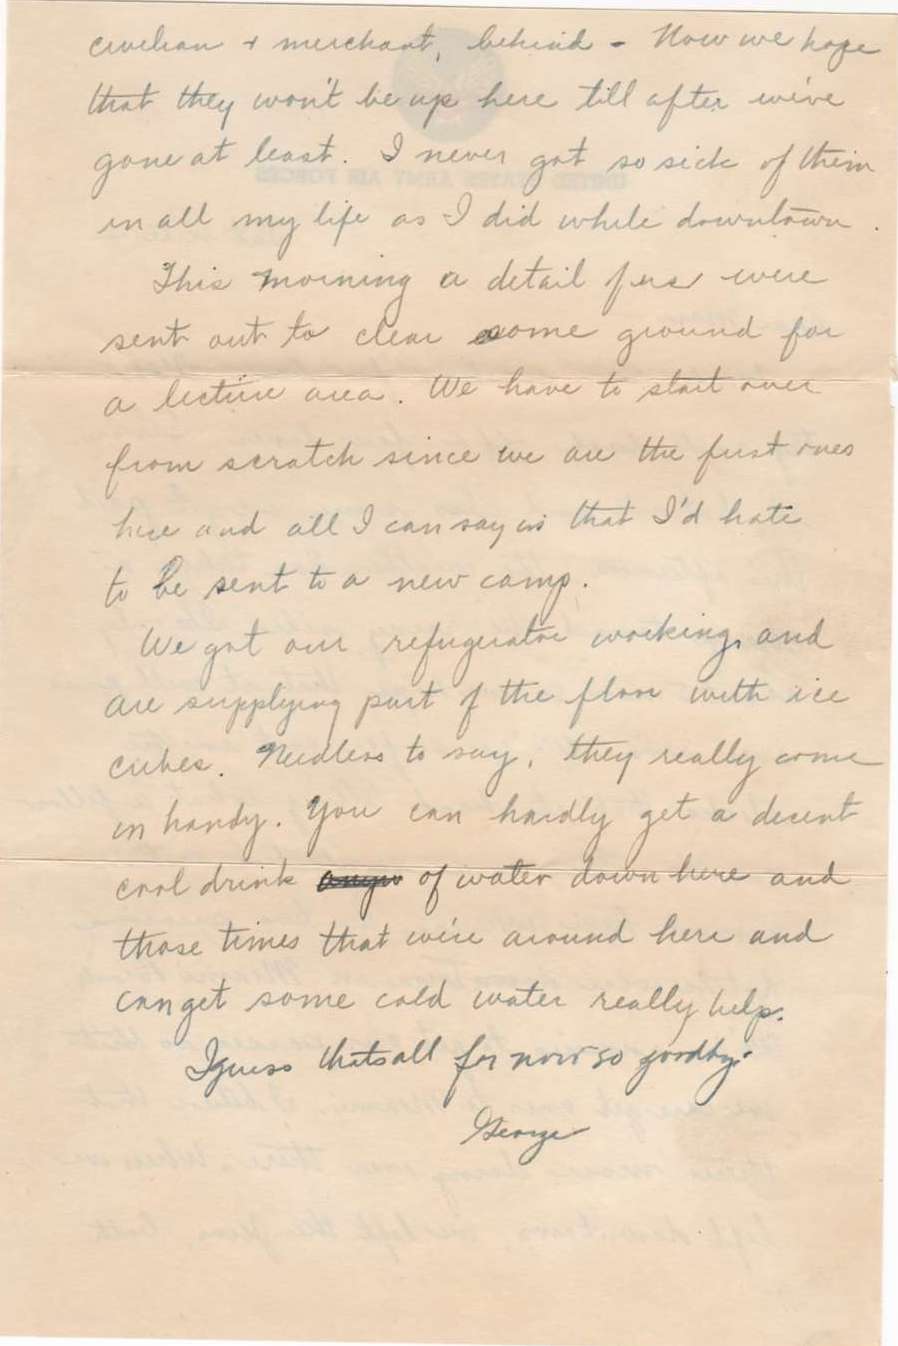 civilian + merchant, behind - Now we hope
that they won't be up here till after we've
gone at least. I never got so sick of them
in all my life as I did while downtown.
This morning a detail of us were
sent out to clear some ground for
a lecture area. We have to start over
from scratch since we are the first ones
here and all I can say is that I'd hate
to be sent to a new camp.
We got our refrigerator working, and
are supplying part of the floor with ice
cubes. Needless to say, they really come
in handy. You can hardly get a decent
cool drink of water down here and
those times that we're around here and
can get some cold water really help.
I guess thats all for now so goodby.
George
UNITED STATES ARMY AIR FORCES